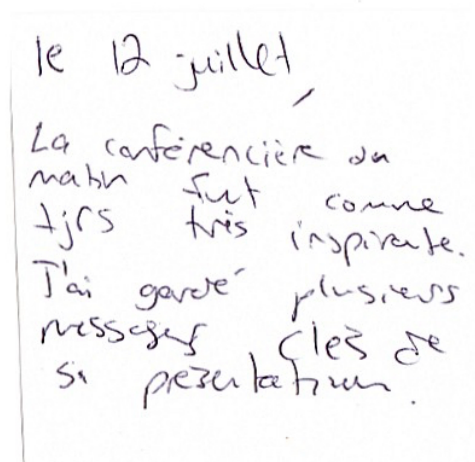 le 12 juillet
La conférencière du
matin fut comme
tjrs très inspirante.
J'ai gardé plusieurs
messages clés de
sa présentation.